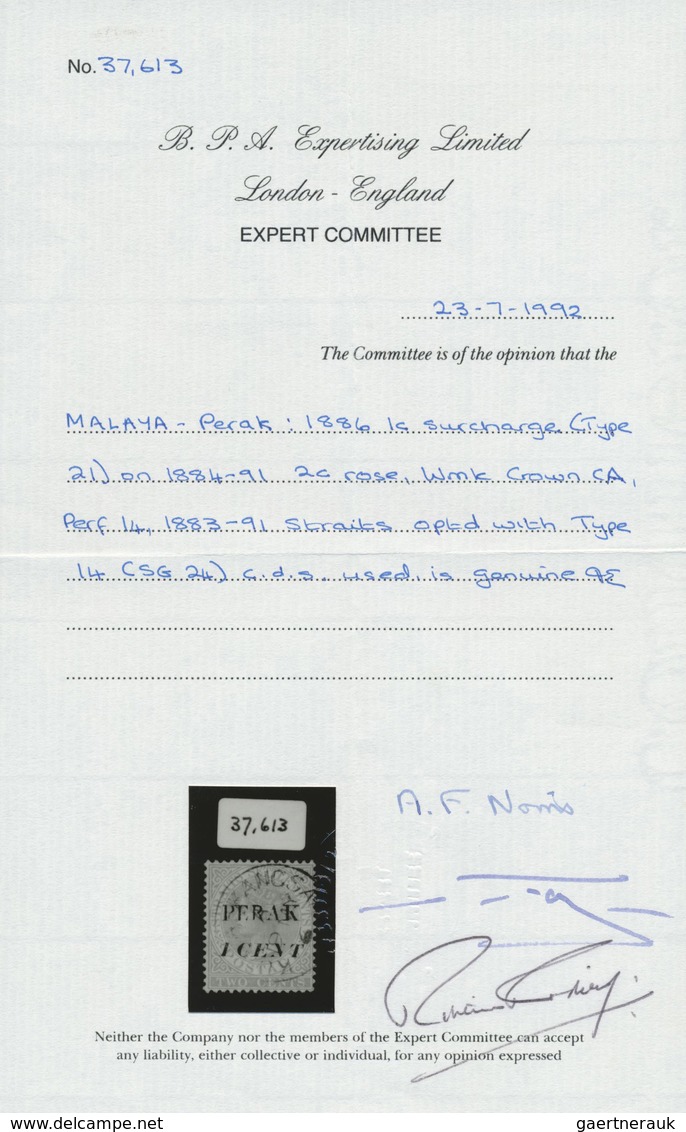 No. 37,613
B. P. A. Expertising Limited
London - England
EXPERT COMMITTEE
23-7-1992
The Committee is of the opinion that the
MALAYA - Perak : 1886 1c surcharge (Type
21) on 1884-91 2c rose, Wmk Crown CA,
Perf 14, 1883-91 Straits optd with Type
14 (SG 24) c.d.s. used, is genuine
37,613
PERAK
1 CENT
TWO CENTS
A. F. Norris
Neither the Company nor the members of the Expert Committee can accept
any liability, either collective or individual, for any opinion expressed
www.delcampe.net
gaertnerauk